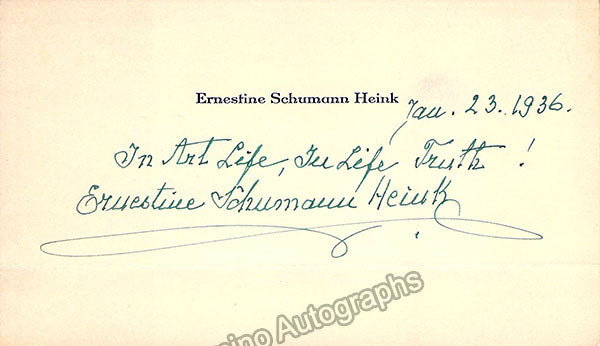 Ernestine Schumann Heink
Jan. 23. 1936.
In Art Life, In Life Truth !
Ernestine Schumann Heink
ino Autographs